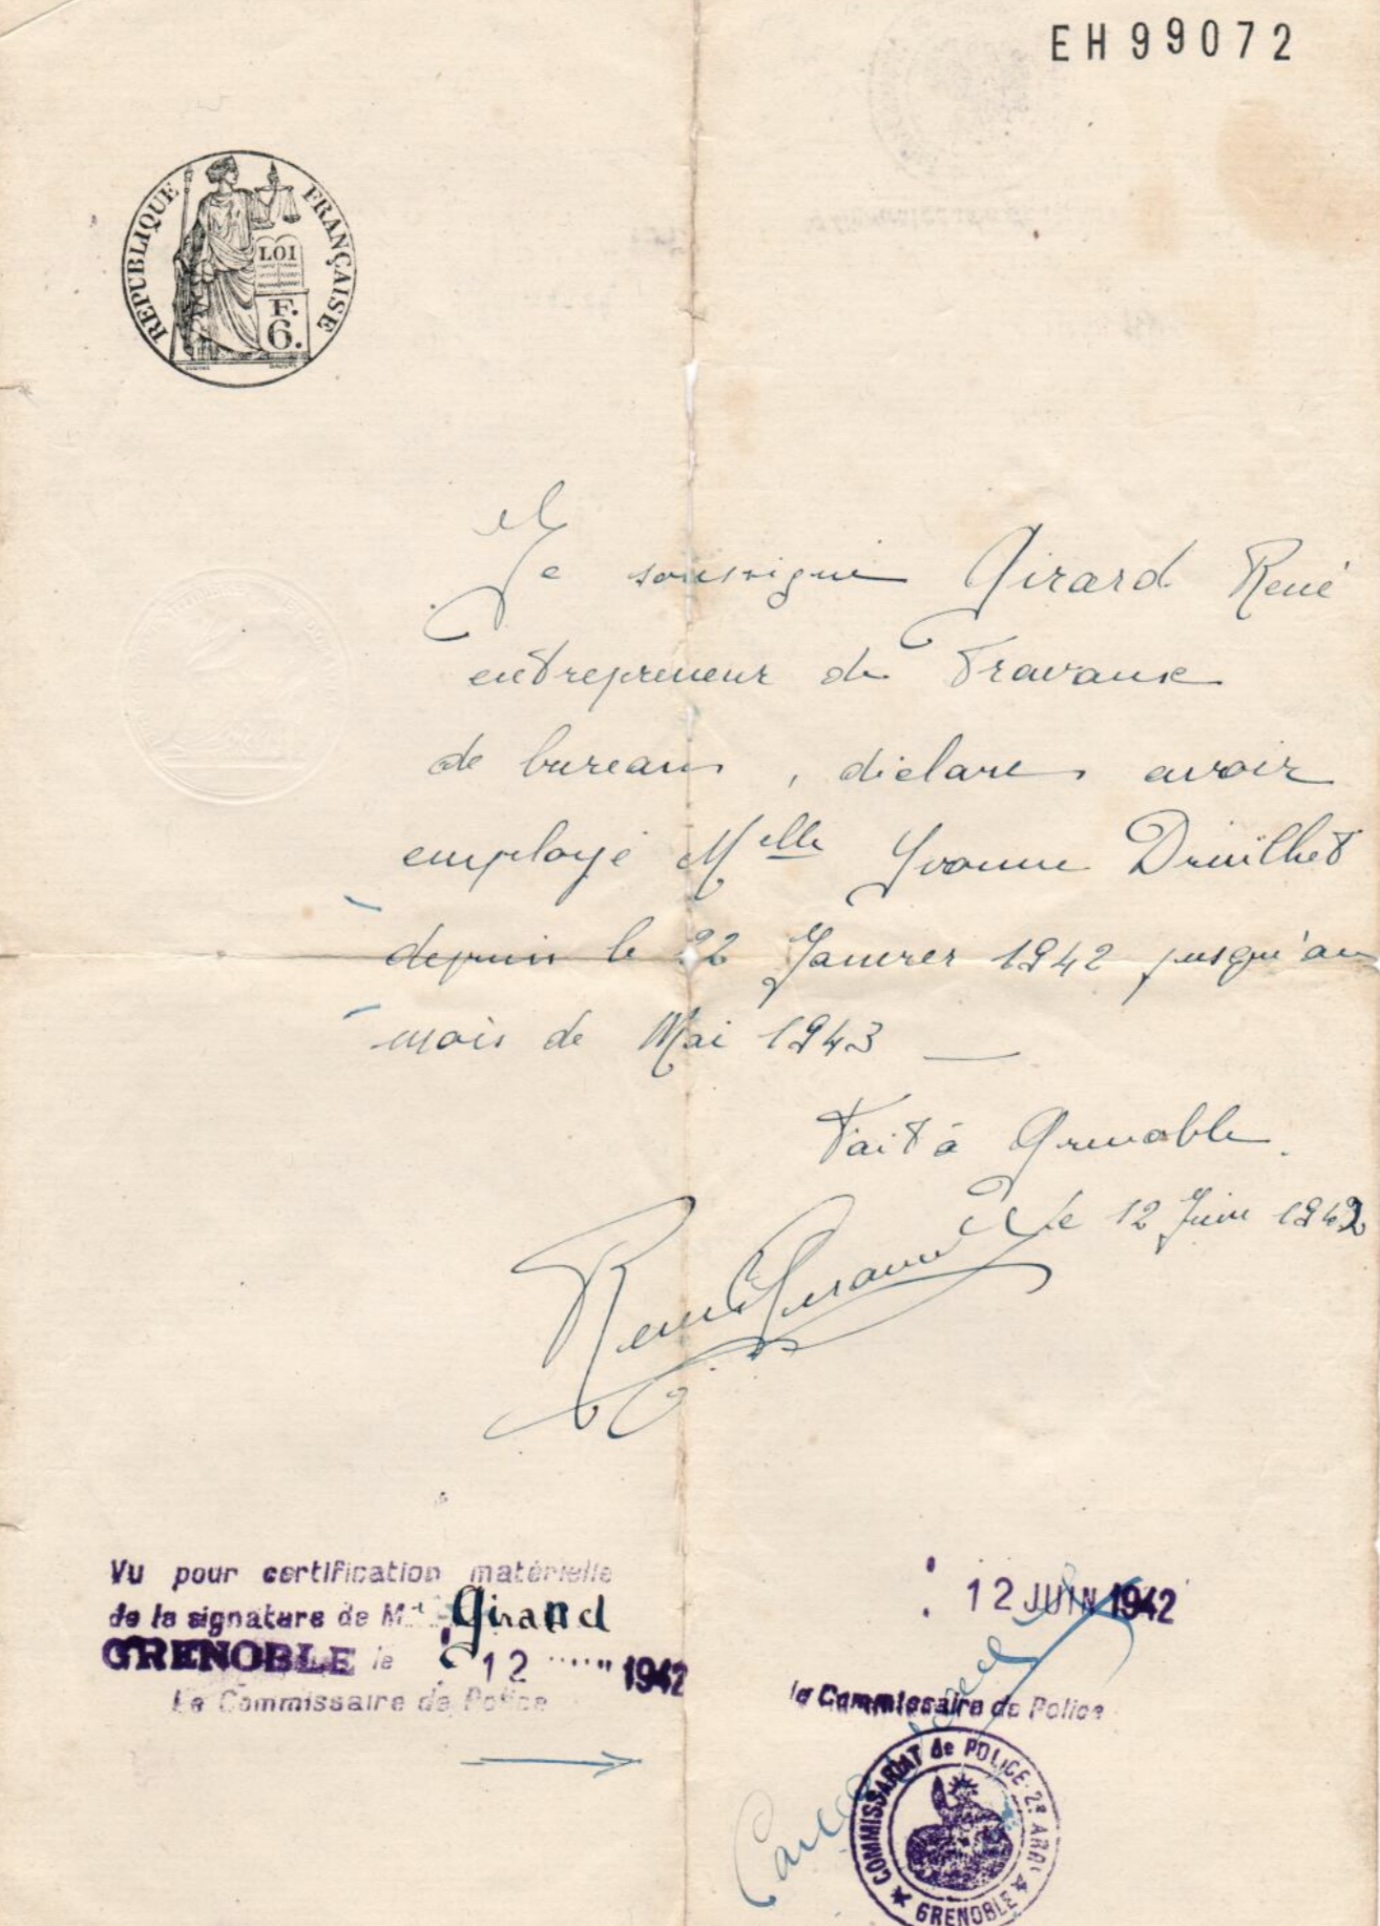 EH99072
REPUBLIQUE FRANÇAISE
LOI
F.
6.
Je soussigné Girard René
entrepreneur de Travaux
de bureau, déclare avoir
employé Melle Yvonne Druilhet
depuis le 22 Janvier 1942 jusqu'au
mois de Mai 1943
Fait à Grenoble.
le 12 Juin 1942
René Girard
Vu pour certification matérielle
de la signature de M Girard
GRENOBLE le 12 1942
Le Commissaire de Police
12 JUIN 1942
le Commissaire de Police
COMMISSARIAT de POLICE 2e ARRt
GRENOBLE